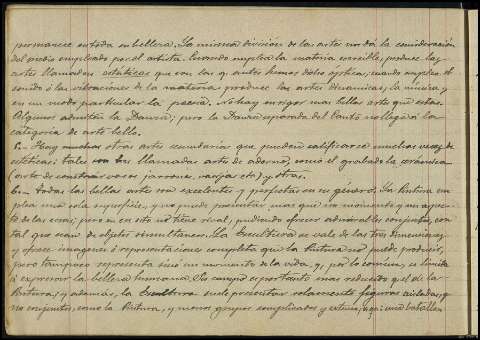 permanece en toda su belleza. La misma división de las artes nos dá la consideración
del medio empleado por el artista. Cuando emplea la materia sensible, produce las
artes llamadas estáticas que son las q. antes hemos dicho ópticas; cuando emplea el
sonido ó las vibraciones de la materia produce las artes dinámicas, la música y
en un modo particular la poesía. No hay en rigor mas bellas artes que estas.
Algunos admiten la Danza; pero la Danza separada del Canto no llega á la
categoría de arte bello.
Hay muchas otras artes secundarias que pueden calificarse muchas veces de
estéticas: tales son las llamadas artes de adorno, como el grabado la cerámica
(arte de construir vasos jarrones, vajilla etc.) y otras.
6._ Todas las bellas artes son excelentes y perfectas en su género. La Pintura em-
plea una sola superficie, y no puede presentar mas que un momento y un aspec-
to de las cosas; pero en esto no tiene rival, pudiendo ofrecer admirables conjuntos, con
tal que sean de objetos simultáneos. La Escultura se vale de las tres dimensiones
y ofrece imágenes ó representaciones completas que la Pintura no puede producir,
pero tampoco representa sino un momento de la vida y, por lo comun, se limita
á expresar la belleza humana. Su campo es por tanto mas reducido q. el de la
Pintura, y además, la Escultura suele presentar solamente figuras aisladas, y
no conjuntos, como la Pintura, y menos grupos complicados y extensos, v. g.: una batalla.